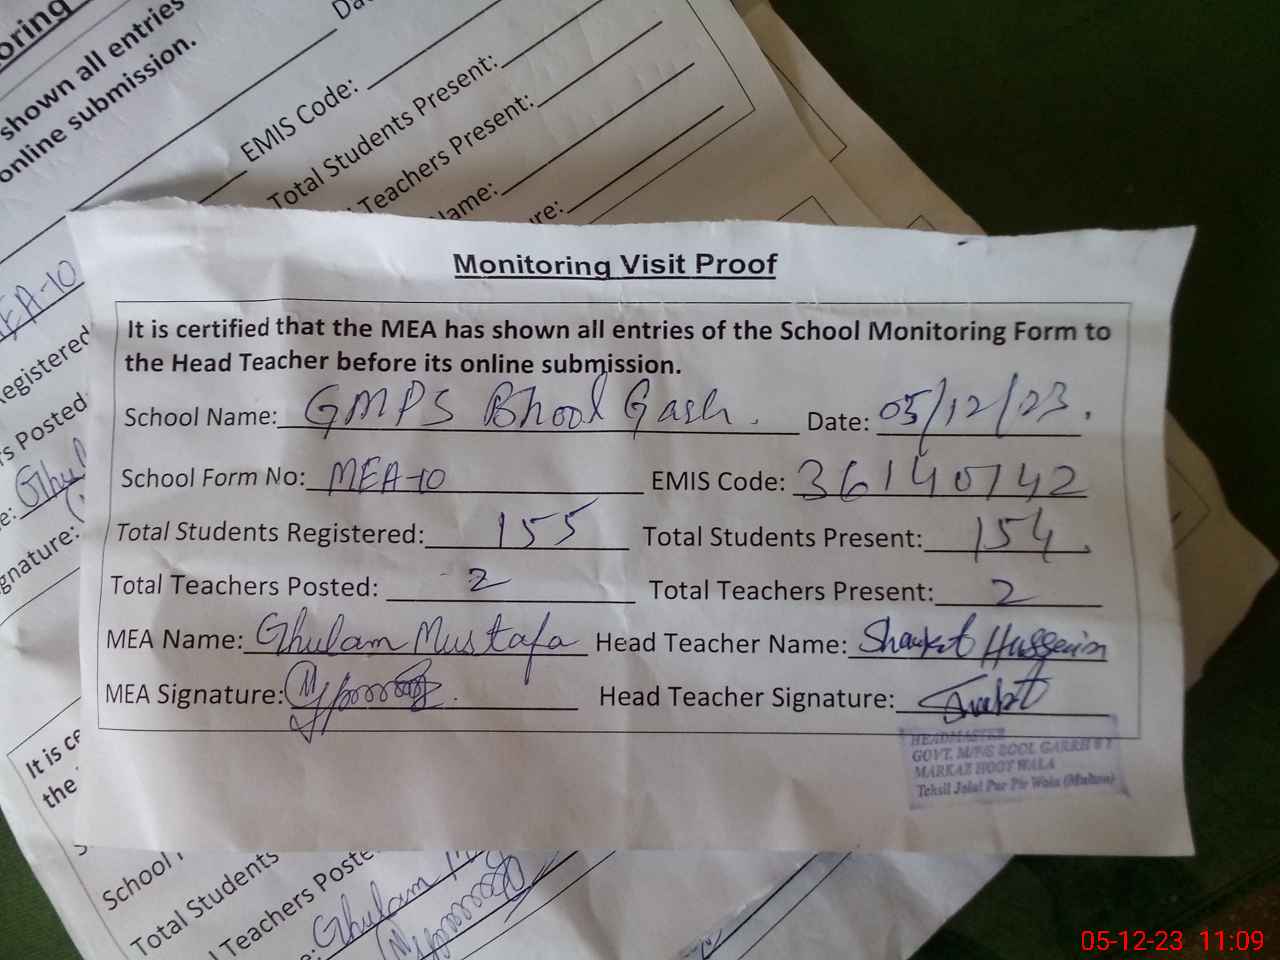 oring
shown all entries
online submission.
EMIS Code:
Total Students Present:
Teachers Present:
Name:
ure:
MEA-10
egistered
s Posted
Ghul
gnature:
Monitoring Visit Proof
It is certified that the MEA has shown all entries of the School Monitoring Form to
the Head Teacher before its online submission.
School Name: GMPS Bhool Gash. Date: 05/12/23.
School Form No: MEA-10 EMIS Code: 36140742
Total Students Registered: 155 Total Students Present: 154
Total Teachers Posted: 2 Total Teachers Present: 2
MEA Name: Ghulam Mustafa Head Teacher Name: Shaukat Hussain
MEA Signature: Head Teacher Signature:
HEADMASTER
GOVT. M/P/S BOOL GARRH
MARKAZ HOOT WALA
Tehsil Jalal Pur Pir Wala (Multan)
It is ce
the
School
Total Students
Teachers Poste
Ghulam
05-12-23 11:09